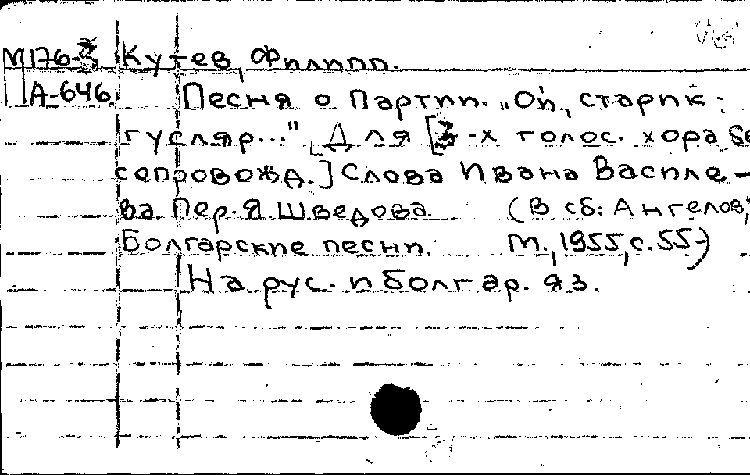 М176-3 Кутев, Филипп.
А-646. Песня о Партии. "Ой, старик-
гусляр..." [Для [3-х голос. хора без
сопровожд.] Слова Ивана Василе-
ва Пер. Я Шведова. (В сб: Ангелов,
Болгарские песни. М., 1955, с. 55-)
На рус. и болгар. яз.